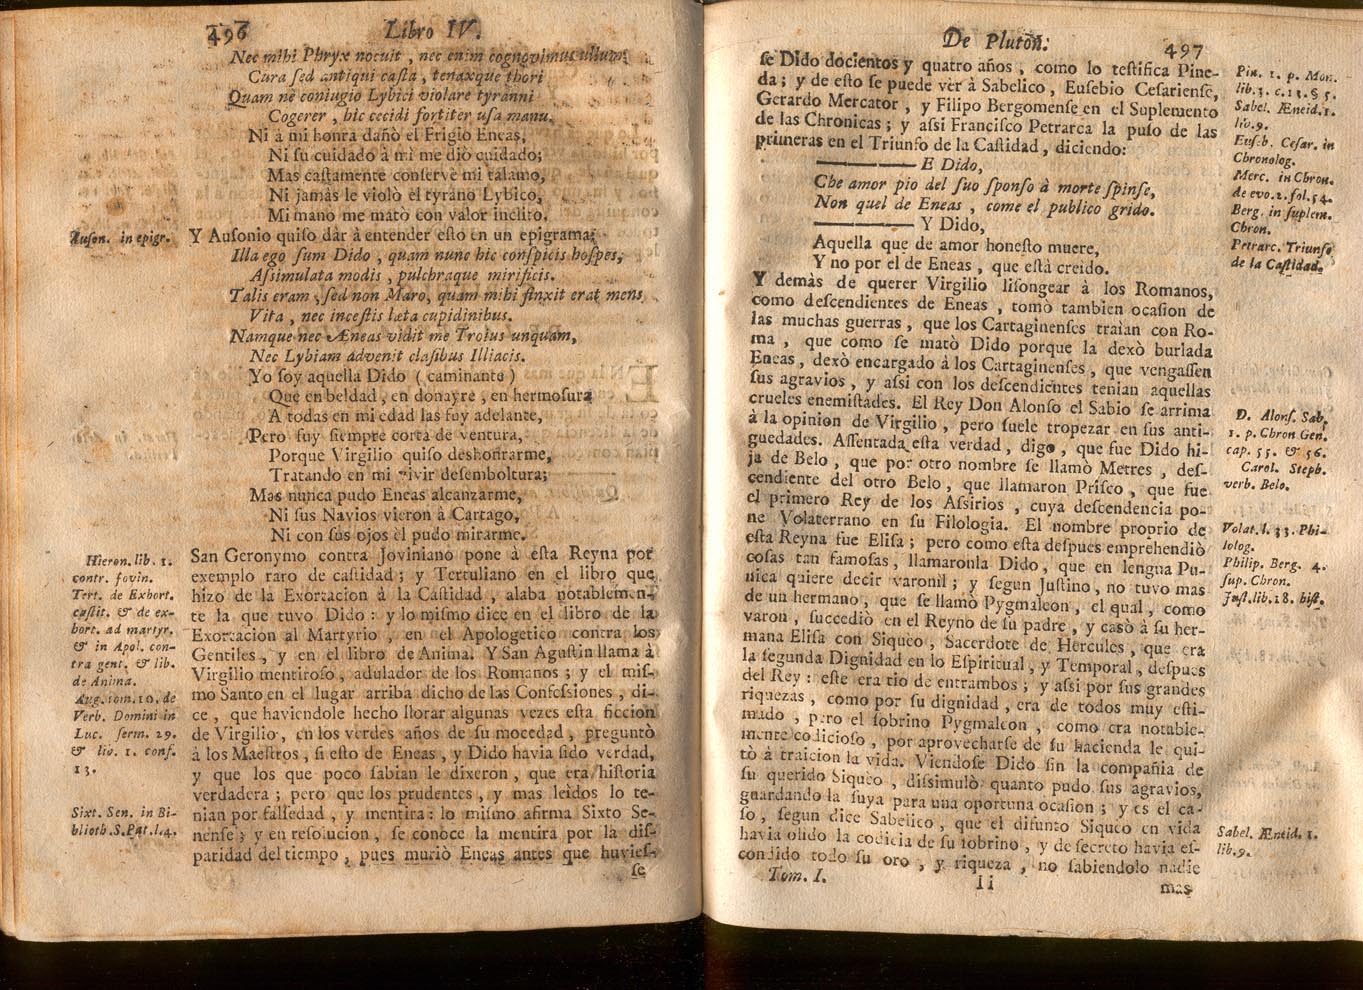 496 Libro IV.
Nec mihi Phryx nocuit, nec enim cognovimus ullum;
Cura ſed antiqui caſta, tenaxque thori
Quam nè coniugio Lybici violare tyranni
Cogerer, hic cecidi fortiter uſa manu.
Ni à mi honra dañò el Frigio Eneas,
Ni ſu cuidado à mi me diò cuidado;
Mas caſtamente conſervè mi talamo,
Ni jamàs le violò el tyrano Lybico,
Mi mano me matò con valor inclito.
Auſon. in epigr.
Y Auſonio quiſo dàr à entender eſto en un epigrama:
Illa ego ſum Dido, quam nunc hic conſpicis hoſpes,
Aſsimulata modis, pulchraque mirificis.
Talis eram, ſed non Maro, quam mihi finxit erat mens
Vita, nec inceſtis læta cupidinibus.
Namque nec Æneas vidit me Troius unquam,
Nec Lybiam advenit claſibus Illiacis.
Yo ſoy aquella Dido (caminante)
Que en beldad, en donayre, en hermoſura
A todas en mi edad las fuy adelante,
Pero fuy ſiempre corta de ventura,
Porque Virgilio quiſo deshonrarme,
Tratando en mi vivir deſemboltura;
Mas nunca pudo Eneas alcanzarme,
Ni ſus Navios vieron à Cartago,
Ni con ſus ojos èl pudo mirarme.
Hieron. lib. 1.
contr. Jovin.
Tert. de Exhort.
caſtit. & de ex-
hort. ad martyr.
& in Apol. con-
tra gent. & lib.
de Anima.
Aug. tom. 10. de
Verb. Domini in
Luc. ſerm. 29.
& lib. 1. conf.
13.
Sixt. Sen. in Bi-
blioth. S. Pat. l. 4.
San Geronymo contra Joviniano pone à eſta Reyna por
exemplo raro de caſtidad; y Tertuliano en el libro que
hizo de la Exortacion à la Caſtidad, alaba notablemen-
te la que tuvo Dido: y lo miſmo dice en el libro de la
Exortacion al Martyrio, en el Apologetico contra los
Gentiles, y en el libro de Anima. Y San Aguſtin llama à
Virgilio mentiroſo, adulador de los Romanos; y el miſ-
mo Santo en el lugar arriba dicho de las Confeſsiones, di-
ce, que haviendole hecho llorar algunas vezes eſta ficcion
de Virgilio, en los verdes años de ſu mocedad, preguntò
à los Maeſtros, ſi eſto de Eneas, y Dido havia ſido verdad,
y que los que poco ſabian le dixeron, que era hiſtoria
verdadera; pero que los prudentes, y mas leidos lo te-
nian por falſedad, y mentira: lo miſmo afirma Sixto Se-
nenſe; y en reſolucion, ſe conoce la mentira por la diſ-
paridad del tiempo, pues muriò Eneas antes que huvieſ-
ſe
De Plutòn. 497
ſe Dido docientos y quatro años, como lo teſtifica Pine-
da; y de eſto ſe puede vèr à Sabelico, Euſebio Ceſarienſe,
Gerardo Mercator, y Filipo Bergomenſe en el Suplemento
de las Chronicas; y aſsi Franciſco Petrarca la puſo de las
primeras en el Triunfo de la Caſtidad, diciendo:
E Dido,
Che amor pio del ſuo ſponſo à morte ſpinſe,
Non quel de Eneas, come el publico grido.
Y Dido,
Aquella que de amor honeſto muere,
Y no por el de Eneas, que eſtà creido.
Pin. 1. p. Mon.
lib. 3. c. 13. § 5.
Sabel. Æneid. 1.
lib. 9.
Euſeb. Ceſar. in
Chronolog.
Merc. in Chron.
de evo. 2. fol. 54.
Berg. in ſuplem.
Chron.
Petrarc. Triunfo
de la Caſtidad.
Y demàs de querer Virgilio liſongear à los Romanos,
como deſcendientes de Eneas, tomò tambien ocaſion de
las muchas guerras, que los Cartaginenſes traian con Ro-
ma, que como ſe matò Dido porque la dexò burlada
Eneas, dexò encargado à los Cartaginenſes, que vengaſſen
ſus agravios, y aſsi con los deſcendientes tenian aquellas
crueles enemiſtades. El Rey Don Alonſo el Sabio ſe arrima
à la opinion de Virgilio, pero ſuele tropezar en ſus anti-
guedades. Aſſentada eſta verdad, digo, que fue Dido hi-
ja de Belo, que por otro nombre ſe llamò Metres, deſ-
cendiente del otro Belo, que llamaron Priſco, que fue
el primero Rey de los Aſsirios, cuya deſcendencia po-
ne Volaterrano en ſu Filologia. El nombre proprio de
eſta Reyna fue Eliſa; pero como eſta deſpues emprehendiò
coſas tan famoſas, llamaronla Dido, que en lengua Pu-
nica quiere decir varonil; y ſegun Juſtino, no tuvo mas
de un hermano, que ſe llamò Pygmaleon, el qual, como
varon, ſuccediò en el Reyno de ſu padre, y casò à ſu her-
mana Eliſa con Siquèo, Sacerdote de Hercules, que era
la ſegunda Dignidad en lo Eſpiritual, y Temporal, deſpues
del Rey: eſte era tio de entrambos; y aſsi por ſus grandes
riquezas, como por ſu dignidad, era de todos muy eſti-
mado, pero el ſobrino Pygmaleon, como era notable-
mente codicioſo, por aprovecharſe de ſu hacienda le qui-
tò à traicion la vida. Viendoſe Dido ſin la compañia de
ſu querido Siquèo, diſsimulò quanto pudo ſus agravios,
guardando la ſuya para una oportuna ocaſion; y es el ca-
ſo, ſegun dice Sabelico, que el difunto Siquèo en vida
havia olido la codicia de ſu ſobrino, y de ſecreto havia eſ-
condido todo ſu oro, y riqueza, no ſabiendolo nadie
D. Alonſ. Sab.
1. p. Chron Gen.
cap. 55. & 56.
Carol. Steph.
verb. Belo.
Volat. l. 33. Phi-
lolog.
Philip. Berg. 4.
ſup. Chron.
Juſt. lib. 18. hiſt.
Sabel. Æneid. 1.
lib. 9.
Tom. I. Ii mas